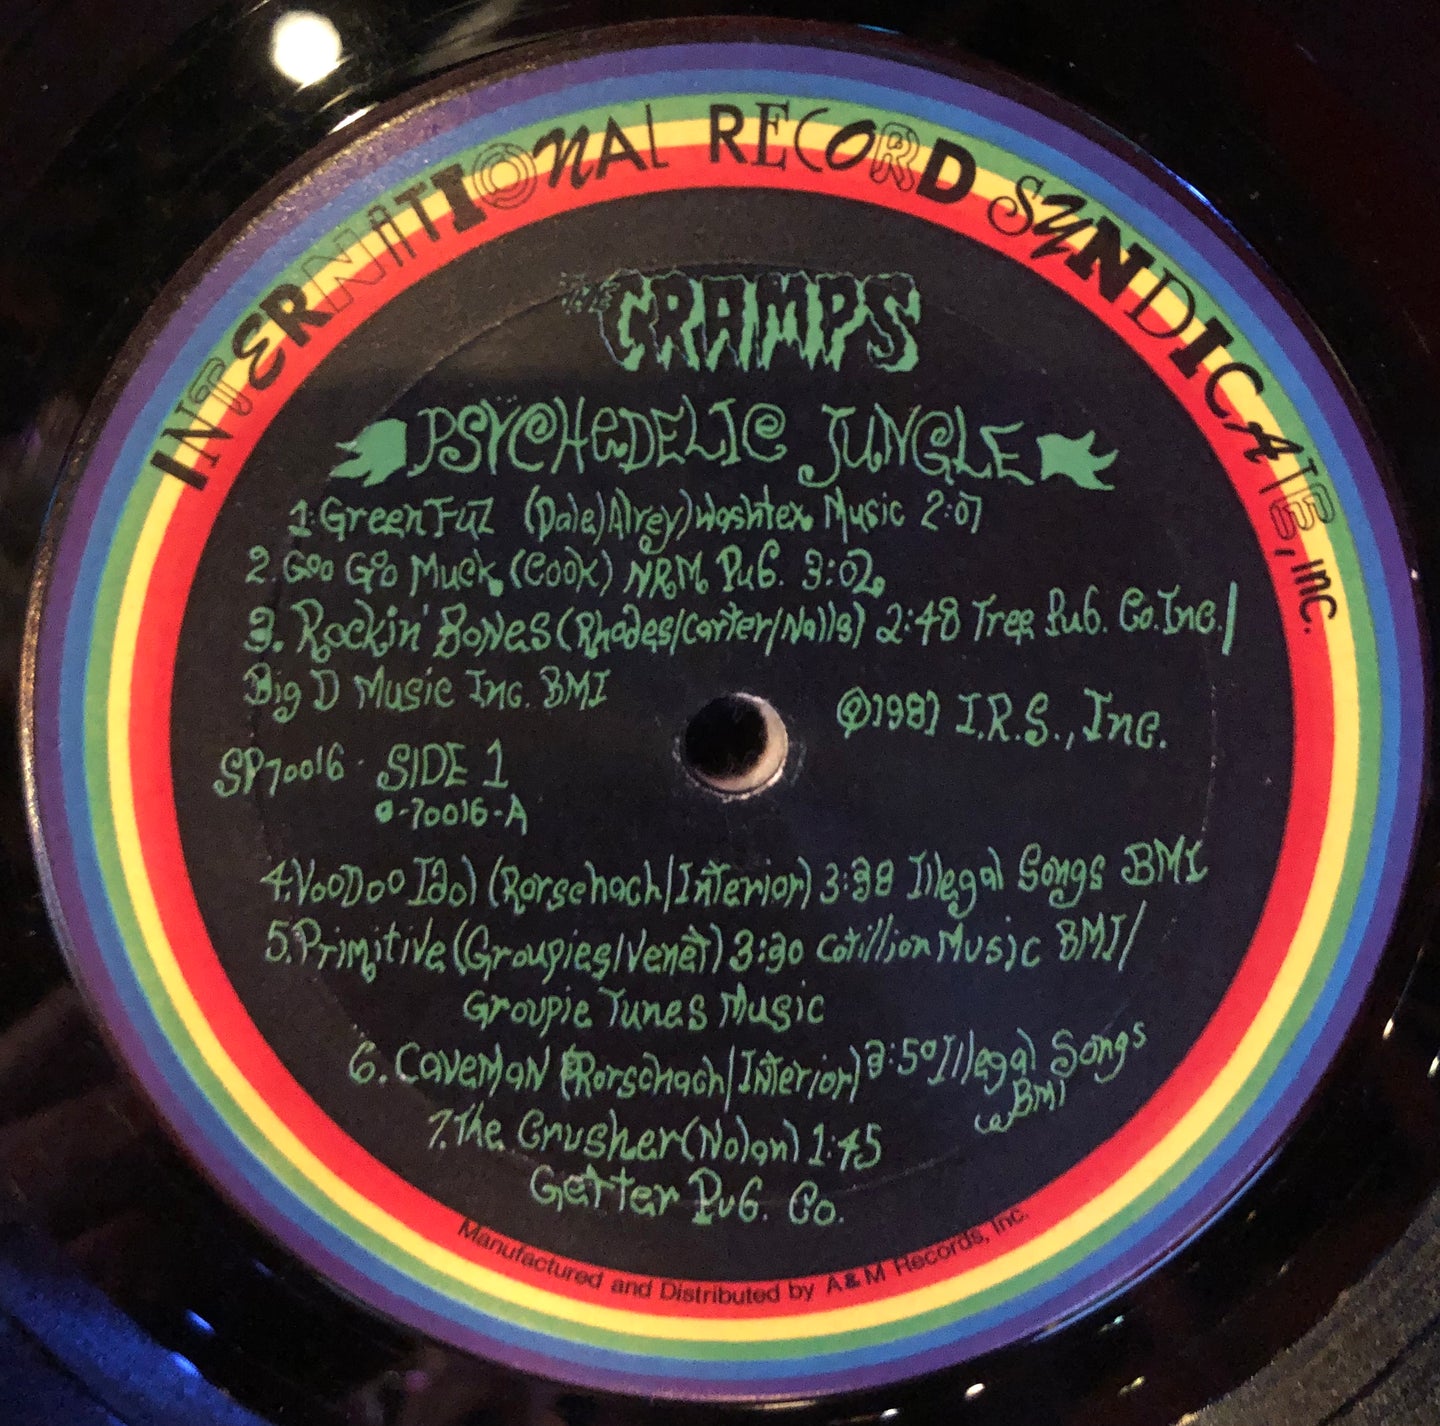 INTERNATIONAL RECORD SYNDICATE, INC.
THE CRAMPS
PSYCHEDELIC JUNGLE
1. Green Fuz (Dale/Alvey) Washtex Music 2:07
2. Goo Goo Muck (Cook) NRM Pub. 3:02
3. Rockin' Bones (Rhodes/Carter/Nalls) 2:48 Tree Pub. Co. Inc./
Big D Music Inc. BMI
℗1981 I.R.S., Inc.
SP70016 · SIDE 1
-70016-A
4. VooDoo Idol (Rorschach/Interior) 3:38 Illegal Songs BMI
5. Primitive (Groupies/Venet) 3:30 Cotillion Music BMI/
Groupie Tunes Music
6. Caveman (Rorschach/Interior) 3:50 Illegal Songs
BMI
7. The Crusher (Nolan) 1:45
Getter Pub. Co.
Manufactured and Distributed by A&M Records, Inc.